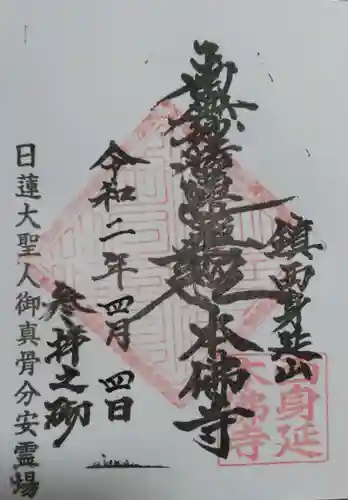 鎮西身延山
南無妙法蓮華経
本佛寺
令和二年四月四日
参拝之砌
日蓮大聖人御真骨分安霊場
西身延
本佛寺